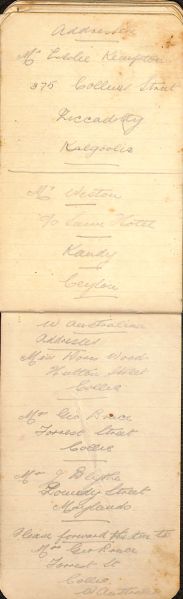 Addresses
Mr Eddie Kempton
375 Collins Street
Piccadilly
Kalgoorlie
Mr Weston
C/o Hotel
Kandy
Ceylon
W Australian
Addresses
Miss Woods
Hutton Street
Collie
Mrs Geo
Forrest Street
Collie
Mrs J Blythe
Street
Maylands
Please forward to
Mrs Geo
Forrest St
Collie
W Australia